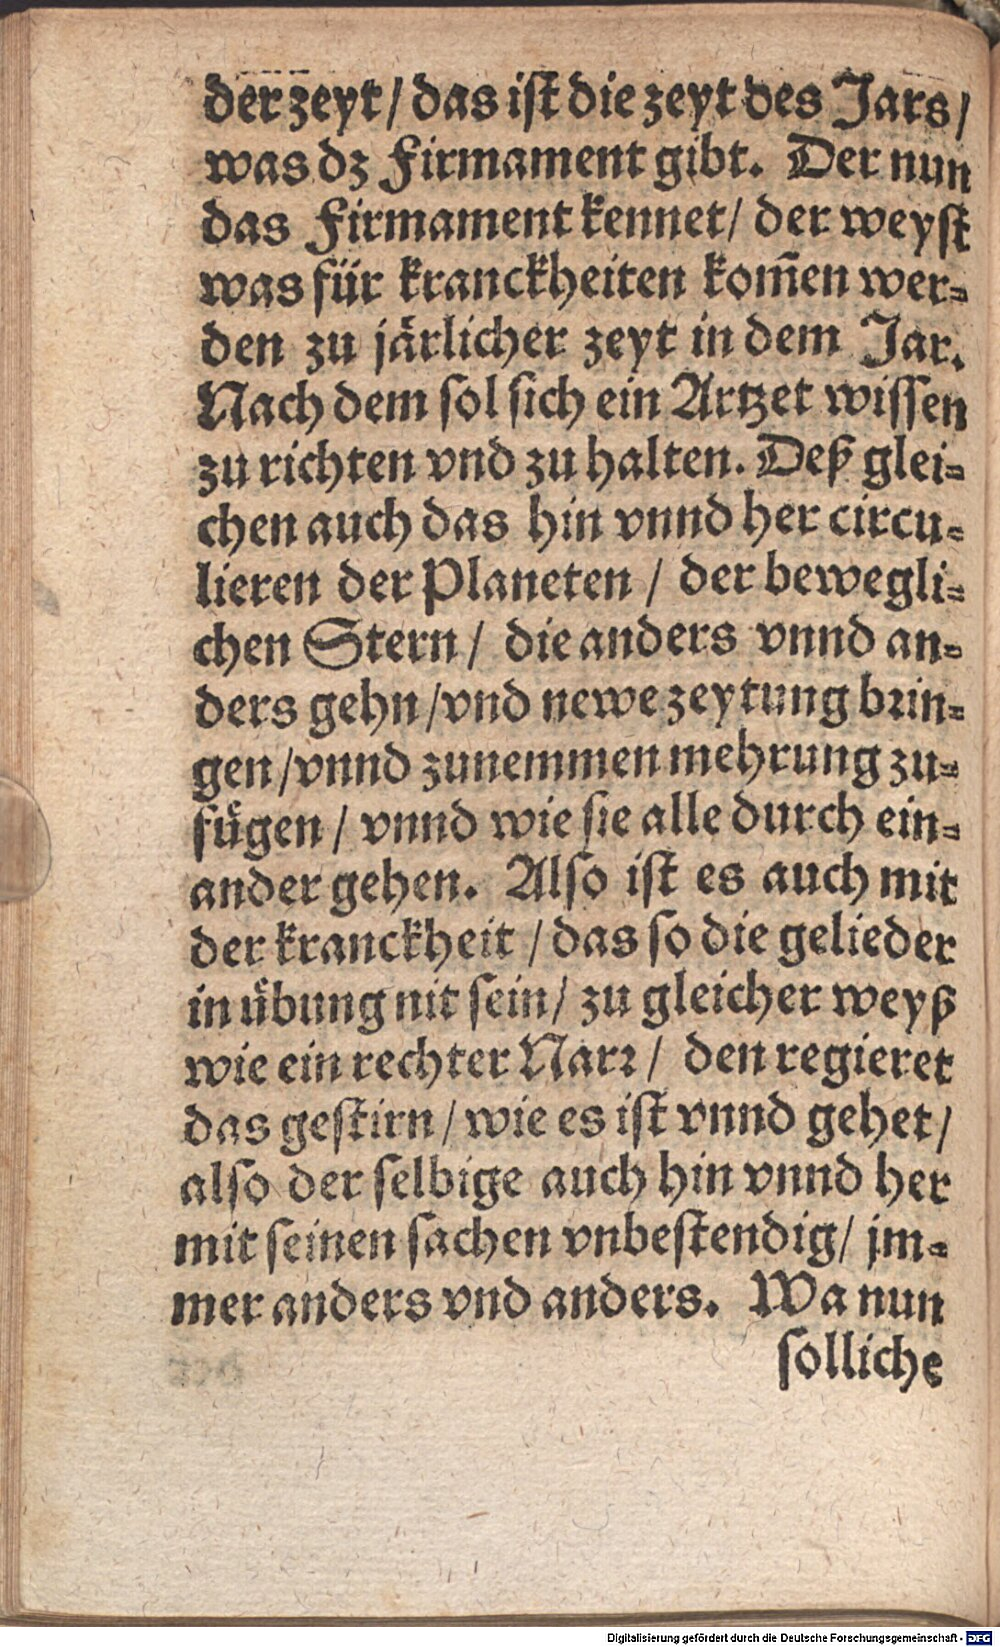 der zeyt / das ist die zeyt des Jars /
was dz Firmament gibt. Der nun
das Firmament kennet / der weyst
was für kranckheiten kom̃en wer⸗
den zu jaͤrlicher zeyt in dem Jar.
Nach dem sol sich ein Artzet wissen
zu richten vnd zu halten. Deß glei⸗
chen auch das hin vnnd her circu⸗
lieren der Planeten / der bewegli⸗
chen Stern / die anders vnnd an⸗
ders gehn / vnd newe zeytung brin⸗
gen / vnnd zunemmen mehrung zu⸗
fuͤgen / vnnd wie sie alle durch ein⸗
ander gehen. Also ist es auch mit
der kranckheit / das so die gelieder
in uͤbung nit sein / zu gleicher weyß
wie ein rechter Narr / den regieret
das gestirn / wie es ist vnnd gehet /
also der selbige auch hin vnnd her
mit seinen sachen vnbestendig / jm⸗
mer anders vnd anders. Wa nun
solliche
Digitalisierung gefördert durch die Deutsche Forschungsgemeinschaft - DFG